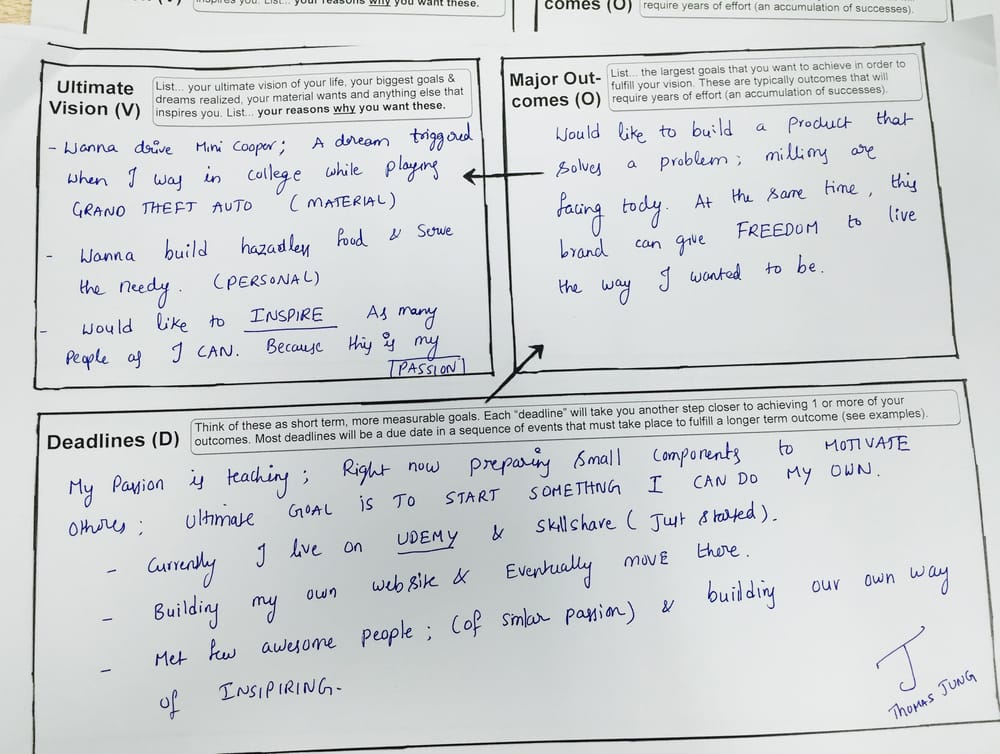 inspires you. List... your reasons why you want these.
comes (O)
require years of effort (an accumulation of successes).
Ultimate
Vision (V)
List... your ultimate vision of your life, your biggest goals &
dreams realized, your material wants and anything else that
inspires you. List... your reasons why you want these.
- Wanna drive Mini Cooper; A dream triggered
when I way in college while playing
GRAND THEFT AUTO (MATERIAL)
- Wanna build hazadley food & Serve
the needy. (PERSONAL)
- Would like to INSPIRE As many
People as I CAN. Because this is my
PASSION
Major Out-
comes (O)
List... the largest goals that you want to achieve in order to
fulfill your vision. These are typically outcomes that will
require years of effort (an accumulation of successes).
Would like to build a Product that
solves a problem; millions are
facing tody. At the same time, this
brand can give FREEDOM to live
the way I wanted to be.
Deadlines (D)
Think of these as short term, more measurable goals. Each "deadline" will take you another step closer to achieving 1 or more of your
outcomes. Most deadlines will be a due date in a sequence of events that must take place to fulfill a longer term outcome (see examples).
My Passion is teaching; Right now preparing small components to MOTIVATE
others; ULTIMATE GOAL is TO START SOMETHNG I CAN DO MY OWN.
- Currently I live on UDEMY & Skillshare (Just started).
- Building my own website & Eventually move there.
- Met few awesome people; (of simlar passion) & building our own way
of INSIPIRING-
J
THOMAS JUNG